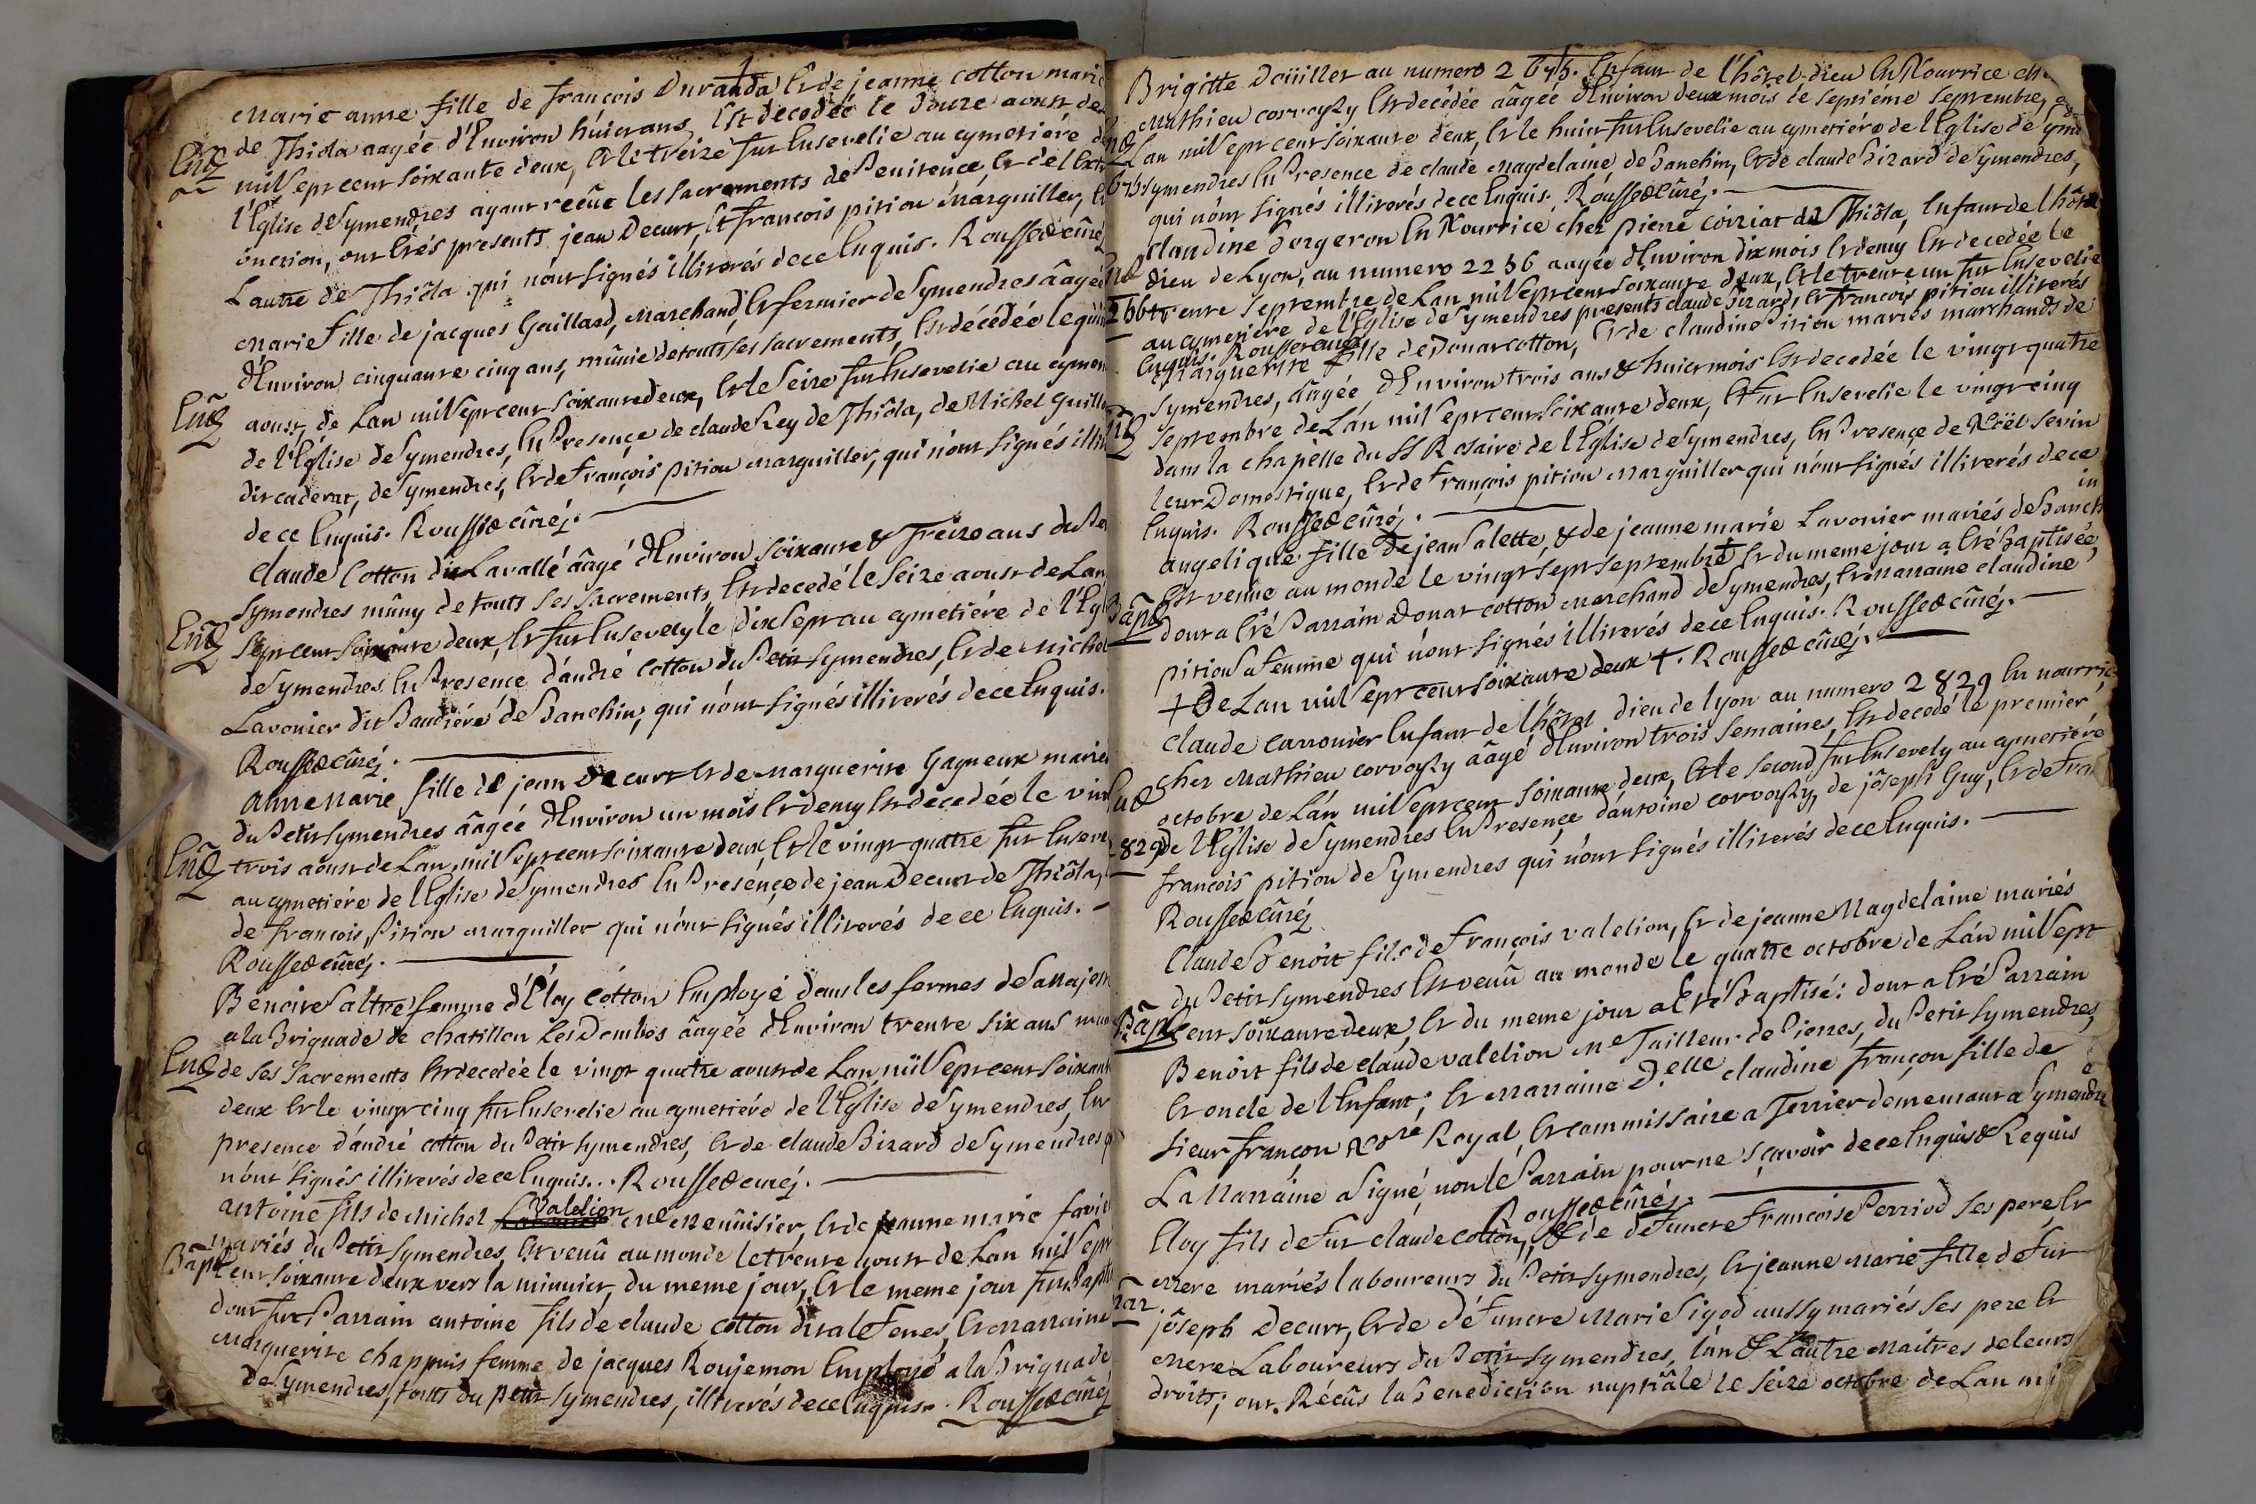 Marie anne fille de françois Duranda Et de jeanne cotton marié
de Thiola aagée d'Environ huict ans, Est decedée le Douze aoust de
Ens
mil sept cent soixante deux, Et le treize fut Ensevelie au cymetiére de
l'Eglise de Symendres ayant reçûe les sacrements de Penitence, Et de l'Extr
onction, ont Etés presents jean Decurt, Et françois pition Marguiller,
L'autre de Thiôla qui n'ont signés illiterés de ce Enquis. Roussedcûré
Marie fille de jacques Gaillard, Marchand, Et fermier de Symendres âagée
d'Environ cinquante cinq ans, mûnie de touts ses sacrements, Est décédée le quin
Ens
aoust, de Lan mil sept cent soixante deux, Et le seize fut Ensevelie au cymet
de l'Eglise de Symendres, En Presençe de claude Rey de Thiôla, de Michel Guille
dit caderat, de Symendres, Et de François pition Marguiller, qui n'ont signés illit
de ce Enquis. Roussedcûréj.
Claude Cotton dit Lavallé âagé d'Environ soixante & Treize ans du Pe
Symendres mûny de touts ses sacrements, Est decedé le seize aoust de Lan
Ens
sept cent soixante deux, Et fut Ensevely le dix sept au cymetiére de l'Egl
de Symendres En Presence d'andré cotton du Petit Symendres, Et de Michel
Lavonier dit Baudiéré de Banchin, qui n'ont signés illiterés de ce Enquis.
Roussedcûréj.
anne Marie fille de jean Decurt Et de Marguerite Gagneux marié
du Petit Symendres âagée d'Environ un mois Et demy Est decedée le vin
Ens
trois aoust de Lan mil sept cent soixante deux, Et le vingt quatre fut Enseve
au cymetiére de l'Eglise de Symendres En Presençe de jean Decurt de Thiôla,
de françois Pition Marguiller qui n'ont signés illiterés de ce Enquis.
Roussedcûréj.
Benoite Saltre femme d'Eloy Cotton Employé dans les fermes de Sa Majest
a la Briguade de chatillon Les Dombes âagée d'Environ trente six ans mun
Ens
de ses sacrements Est decedée le vingt quatre aoust de Lan mil sept cent soixante
deux Et le vingt cinq fut Ensevelie au cymetiére de l'Eglise de Symendres, En
presence d'andré cotton du Petit Symendres, Et de claude Bizard de Symendres q
n'ont signés illiterés de ce Enquis... Roussedcuréj.
antoine fils de Michel Valelion Me Menûisier, Et de jeanne marie favi
mariés du Petit Symendres, Est venû au monde le trente aoust de Lan mil sept
Bapt
cent soixante deux vers la minuict, du meme jour, Et le meme jour fut Bapt
dont fut Parrain antoine fils de claude cotton dit Marraine
Marguerite chappuis femme de jacques Roujemon Employé a la Briguade
de Symendres, touts du petit Symendres, illiterés de ce Enquis. Roussedcûréj
Brigitte Doüiller au numero Enfant de l'hôtel-dieu En Nourrice che
Mathieu corvoysy Est decédée âagée d'Environ deux mois le septiéme septembre,
Lan mil sept cent soixante deux, Et le huict fut Ensevelie au cymetiére de l'Eglise de Syme
Symendres En Presence de claude Magdelaine de Banchin, Et de claude Bizard de Symendres,
qui n'ont signés illiterés de ce Enquis. Roussedcûréj.
claudine Forgeron En Nourrice chez pierre coiziat de Thiôla, Enfant de l'hôtel
dieu de Lyon, au numero 2256 aagée d'Environ dix mois Et demy Est decedée le
trente septembre de Lan mil sept cent soixante deux, Et le trente un fut Ensevelie
au cymetiére de l'Eglise de Symendres presents claude Bizard, Et françois pition illiterés
Enquis. Roussedcuré
Marguerite fille de Donat cotton, Et de claudine Pition mariés marchands de
Symendres, âagée d'Environ trois ans & huict mois Est decedée le vingt quatre
Ens
septembre de Lan mil sept cent soixante deux, Et fut Ensevelie le vingt cinq
dans la chapelle du SS Rosaire de l'Eglise de Symendres, En Presençe de Noël sevin
leur Domestique, Et de François pition Marguiller qui n'ont signés illiterés de ce
Enquis. Roussedcûréj.
angelique fille de jean Salette, & de jeanne marie Lavonier mariés de Banch
in
Est venüe au monde le vingt sept septembre + Et du meme jour a Eté Baptisée
Bapt
dont a Eté Parrain Donat cotton Marchand de Symendres, Et Marraine claudine
pition sa femme qui n'ont signés illiterés de ce Enquis. Roussedcûréj.
+ De Lan mil sept cent soixante deux +. Roussedcûréj.
claude carronier Enfant de l'hôtel dieu de lyon au numero 2829 En nourric
chez Mathieu corvoysy âagé d'Environ trois semaines, Est decedé le premier
Ens
octobre de Lan mil sept cent soixante deux, Et le second fut Ensevely au cymetiére
2829
de l'Eglise de Symendres En Presençe d'antoine corvoysy, de jôseph Guy, Et de fran
françois pition de Symendres qui n'ont signés illiterés de ce Enquis.
Roussedcûréj
Claude Benoit fils de François valelion, Et de jeanne Magdelaine mariés
du Petit Symendres Est venû au monde le quatre octobre de Lan mil sept
Bapt
cent soixante deux, Et du meme jour a Eté Baptisé: dont a Eté Parrain
Benoit fils de claude valelion Me Tailleur de Pierres, du Petit Symendres,
Et oncle de l'Enfant; Et Marraine D.elle claudine françon fille de
sieur françon Nore Royal, Et commissaire a Terrier demeurant a Symendre
La Marraine a signé, non le Parrain pour ne sçavoir de ce Enquis & Requis
Roussedcûréj.
Eloy fils de fut claude cotton, & de defuncte Françoise Perriod ses pere, Et
mere mariés laboureurs du Petit Symendres, Et jeanne Marie fille de fut
Mar
jôseph Decurt, Et de défuncte Marie Sigod aussy mariés ses pere Et
mere Laboureurs du Petit Symendres, l'un & L'autre Maitres de leurs
droits; ont Récûs la Benediction nuptiâle le seize octobre de Lan mi